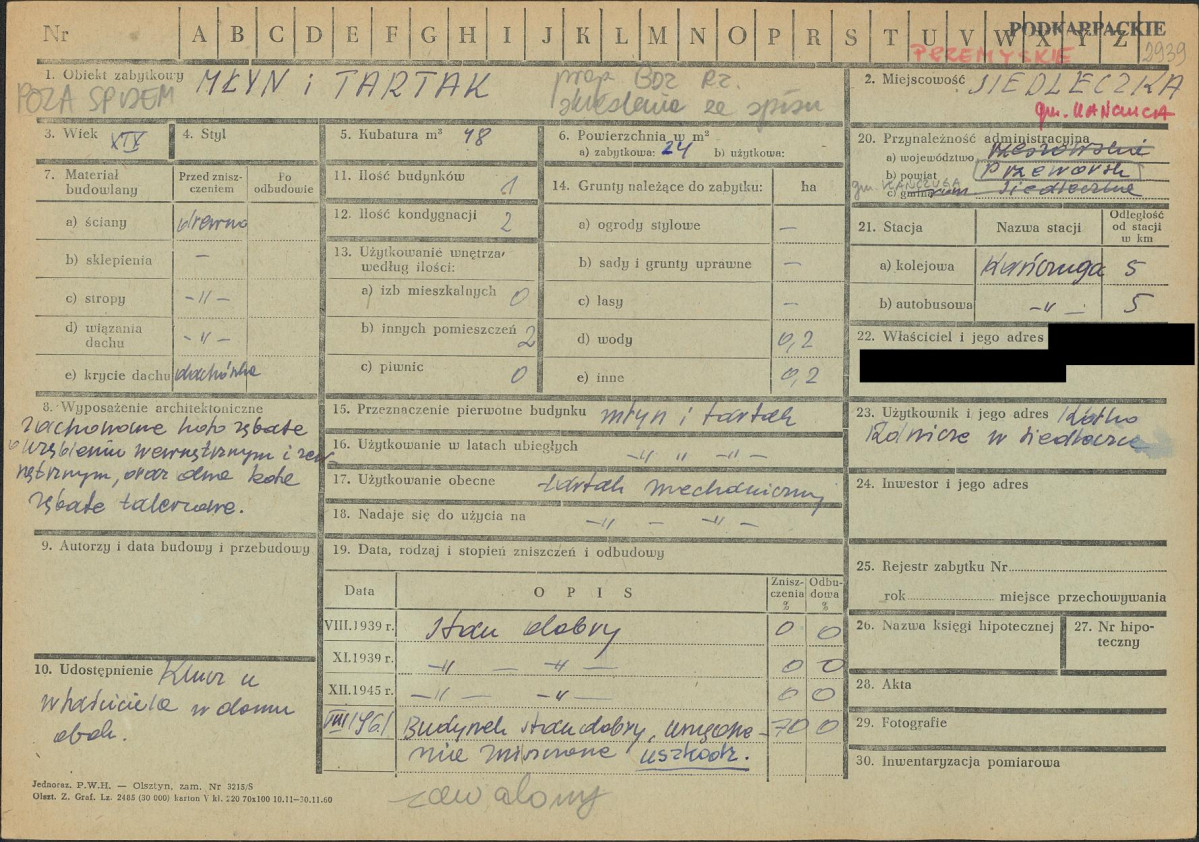 Nr A B C D E F G H I J K L M N O P R S T U V W X Y Z
PODKARPACKIE
PRZEMYSKIE 2939
1. Obiekt zabytkowy MŁYN i TARTAK
POZA SPISEM
prop BDZ Rz.
skreślenia ze spisu
2. Miejscowość SIEDLECZKA
gm. KAŃCUGA
3. Wiek XIX
4. Styl
5. Kubatura m³ 48
6. Powierzchnia w m²
a) zabytkowa: 24 b) użytkowa:
7. Materiał budowlany
Przed zniszczeniem
Po odbudowie
a) ściany drewno
b) sklepienia —
c) stropy —„—
d) wiązania dachu —„—
e) krycie dachu dachówka
8. Wyposażenie architektoniczne
zachowane koło zębate
o uzębieniu wewnętrznym i zew
nętrznym, oraz dwa koła
zębate talerzowe.
9. Autorzy i data budowy i przebudowy
10. Udostępnienie Klucz u
właściciela w domu
obok.
11. Ilość budynków 1
12. Ilość kondygnacji 2
13. Użytkowanie wnętrza według ilości:
a) izb mieszkalnych 0
b) innych pomieszczeń 2
c) piwnic 0
14. Grunty należące do zabytku: ha
a) ogrody stylowe —
b) sady i grunty uprawne —
c) lasy —
d) wody 0,2
e) inne 0,2
15. Przeznaczenie pierwotne budynku młyn i tartak
16. Użytkowanie w latach ubiegłych —„ „ —„—
17. Użytkowanie obecne tartak mechaniczny
18. Nadaje się do użycia na —„— —„—
19. Data, rodzaj i stopień zniszczeń i odbudowy
Data OPIS Zniszczenia % Odbudowa %
VIII.1939 r. Stan dobry 0 0
XI.1939 r. —„— —„— 0 0
XII.1945 r. —„— —„— 0 0
VIII/961 Budynek stan dobry, urządze- 70 0
nie zniszczone uszkodz.
zawalony
20. Przynależność administracyjna
a) województwo rzeszowskie
b) powiat Przeworsk
gm. KAŃCZUGA
c) gmina Siedleczka
21. Stacja Nazwa stacji Odległość od stacji w km
a) kolejowa Kańczuga 5
b) autobusowa —„— 5
22. Właściciel i jego adres
23. Użytkownik i jego adres Kółko
Rolnicze w Siedleczce
24. Inwestor i jego adres
25. Rejestr zabytku Nr
rok miejsce przechowywania
26. Nazwa księgi hipotecznej
27. Nr hipoteczny
28. Akta
29. Fotografie
30. Inwentaryzacja pomiarowa
Jednoraz. P.W.H. — Olsztyn, zam. Nr 3215/S
Olszt. Z. Graf. Lz. 2485 (30 000) karton V kl. 220 70x100 10.11—30.11.60